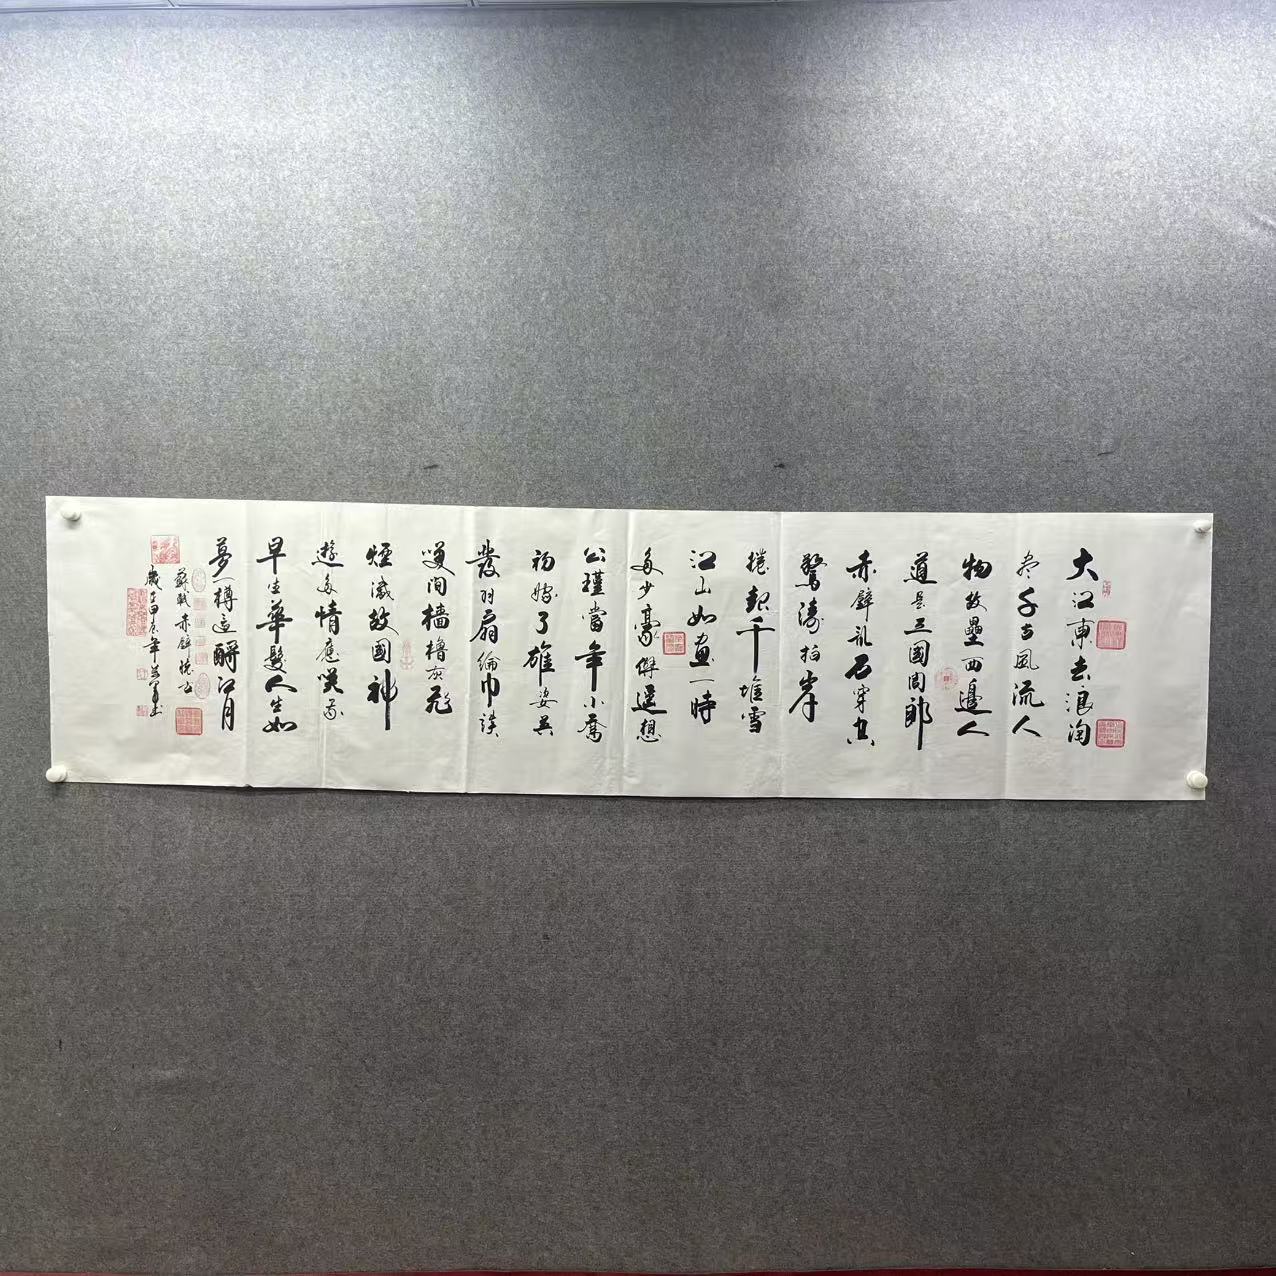 大江東去浪淘
盡千古風流人
物故壘西邊人
道是三國周郎
赤壁亂石穿空
驚濤拍岸
捲起千堆雪
江山如畫一時
多少豪傑遙想
公瑾當年小喬
初嫁了雄姿英
發羽扇綸巾談
笑间檣櫓灰飛
煙滅故國神
遊多情應笑我
早生華髮人生如
夢一樽還酹江月
蘇軾赤壁懷古
歲在甲辰年